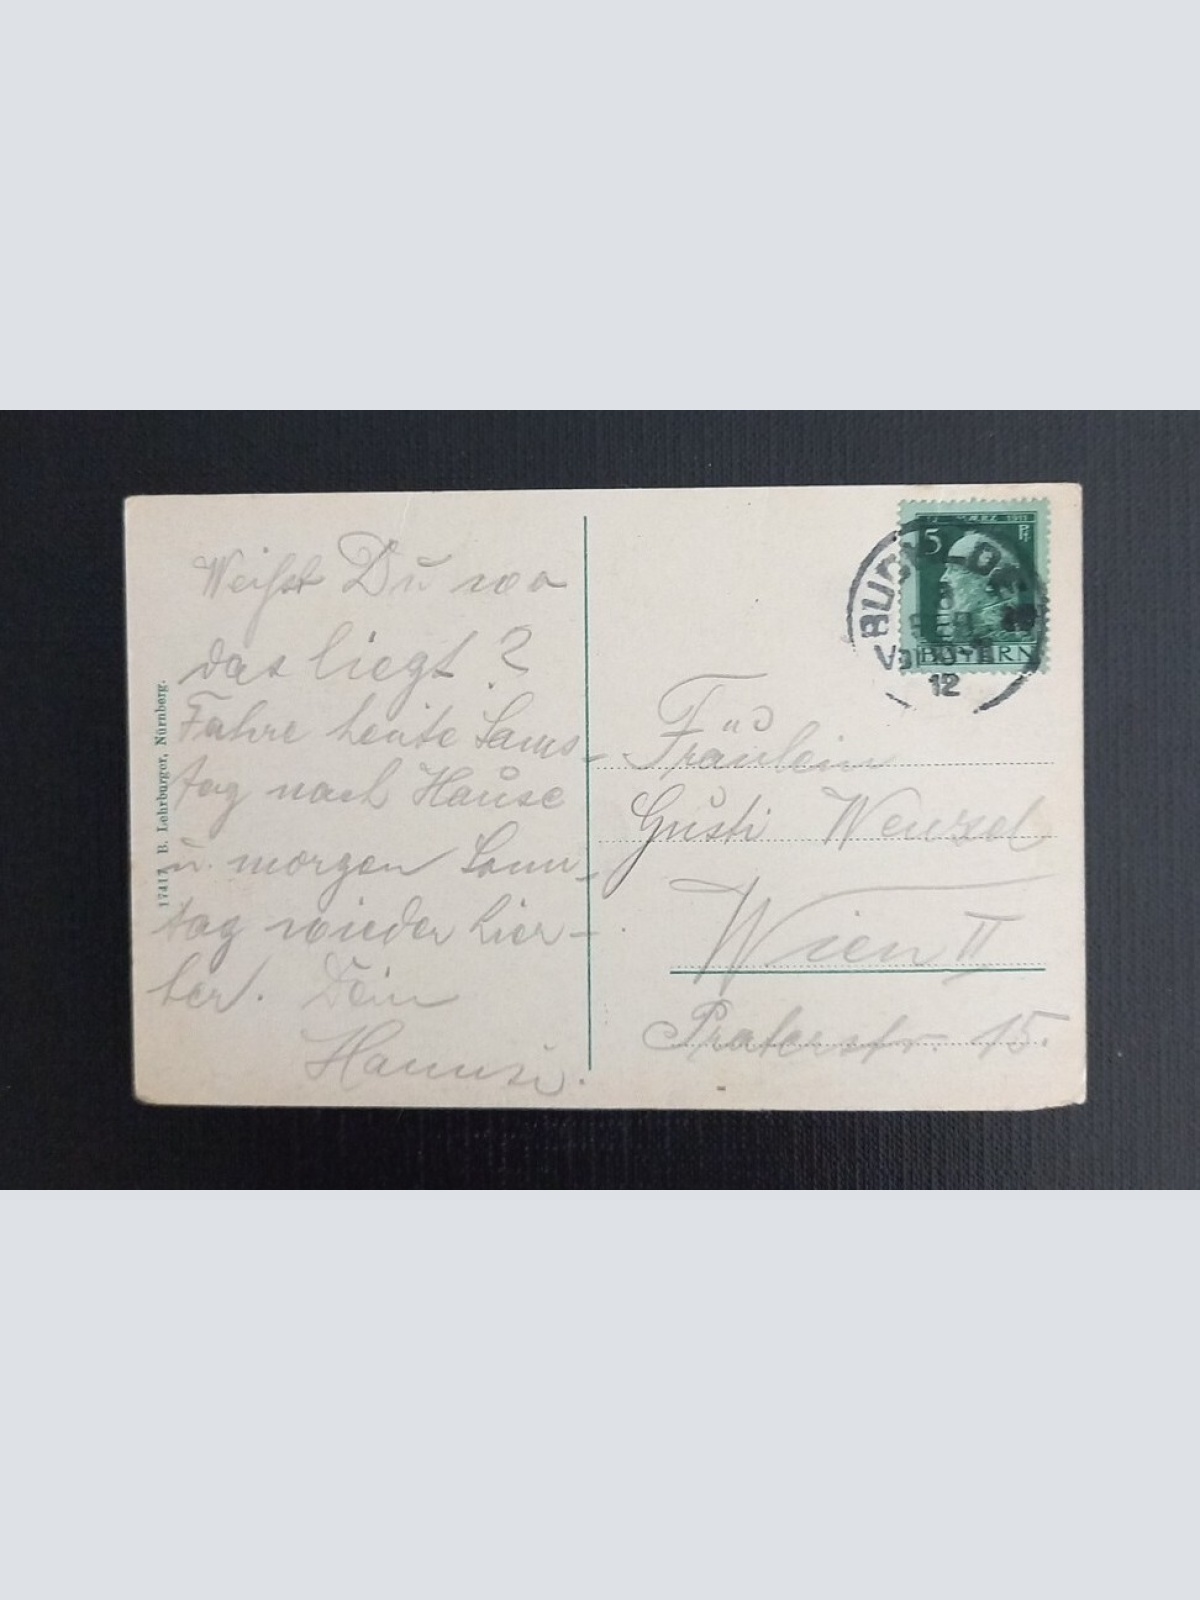 Weißt Du wo
das liegt?
Fahre heute Sams-
tag nach Hause
u. morgen Sonn-
tag wieder hier-
her. Dein
Hansi.
17417 B. Lehrburger, Nürnberg.
12. MÄRZ 1911
5 Pf
BAYERN
8
SEP
12
Fräulein
Gusti Wenzel
Wien II
Praterstr. 15.